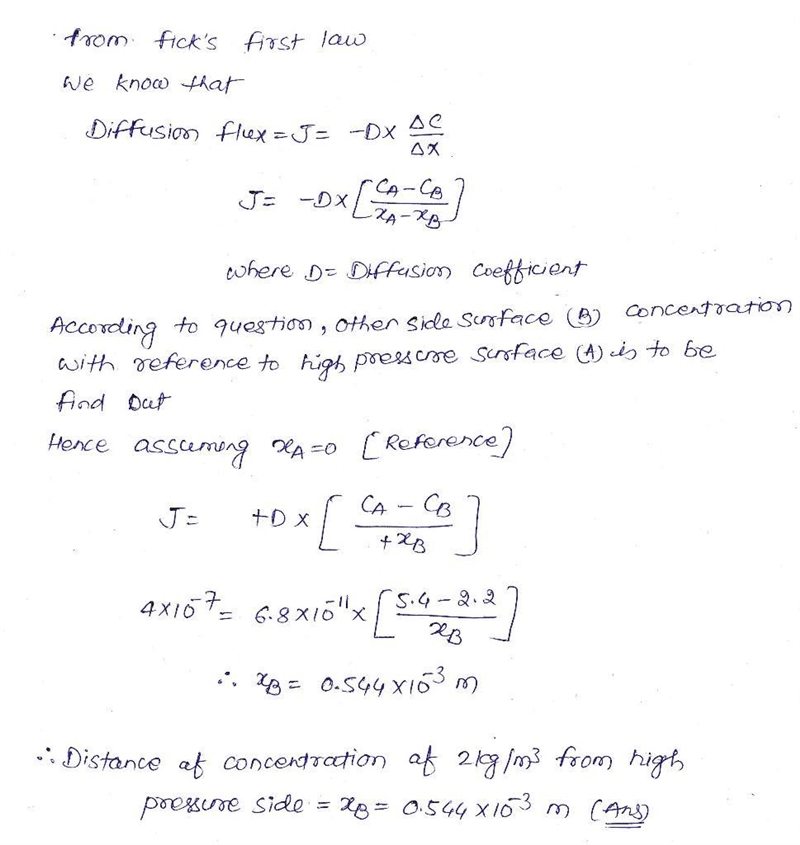 from fick's first law
We know that
Diffusion flux = J = -D× ΔC/Δx
J = -D× [ (C_A - C_B)/(x_A - x_B) ]
where D = Diffusion coefficient
According to question, other side surface (B) concentration
with reference to high pressure surface (A) is to be
find out
Hence assuming x_A = 0 [Reference]
J = +D × [ (C_A - C_B)/(+x_B) ]
4×10^-7 = 6.8×10^-11 × [ (5.4 - 2.2)/x_B ]
∴ x_B = 0.544×10^-3 m
∴ Distance of concentration of 2kg/m³ from high
pressure side = x_B = 0.544×10^-3 m (Ans)